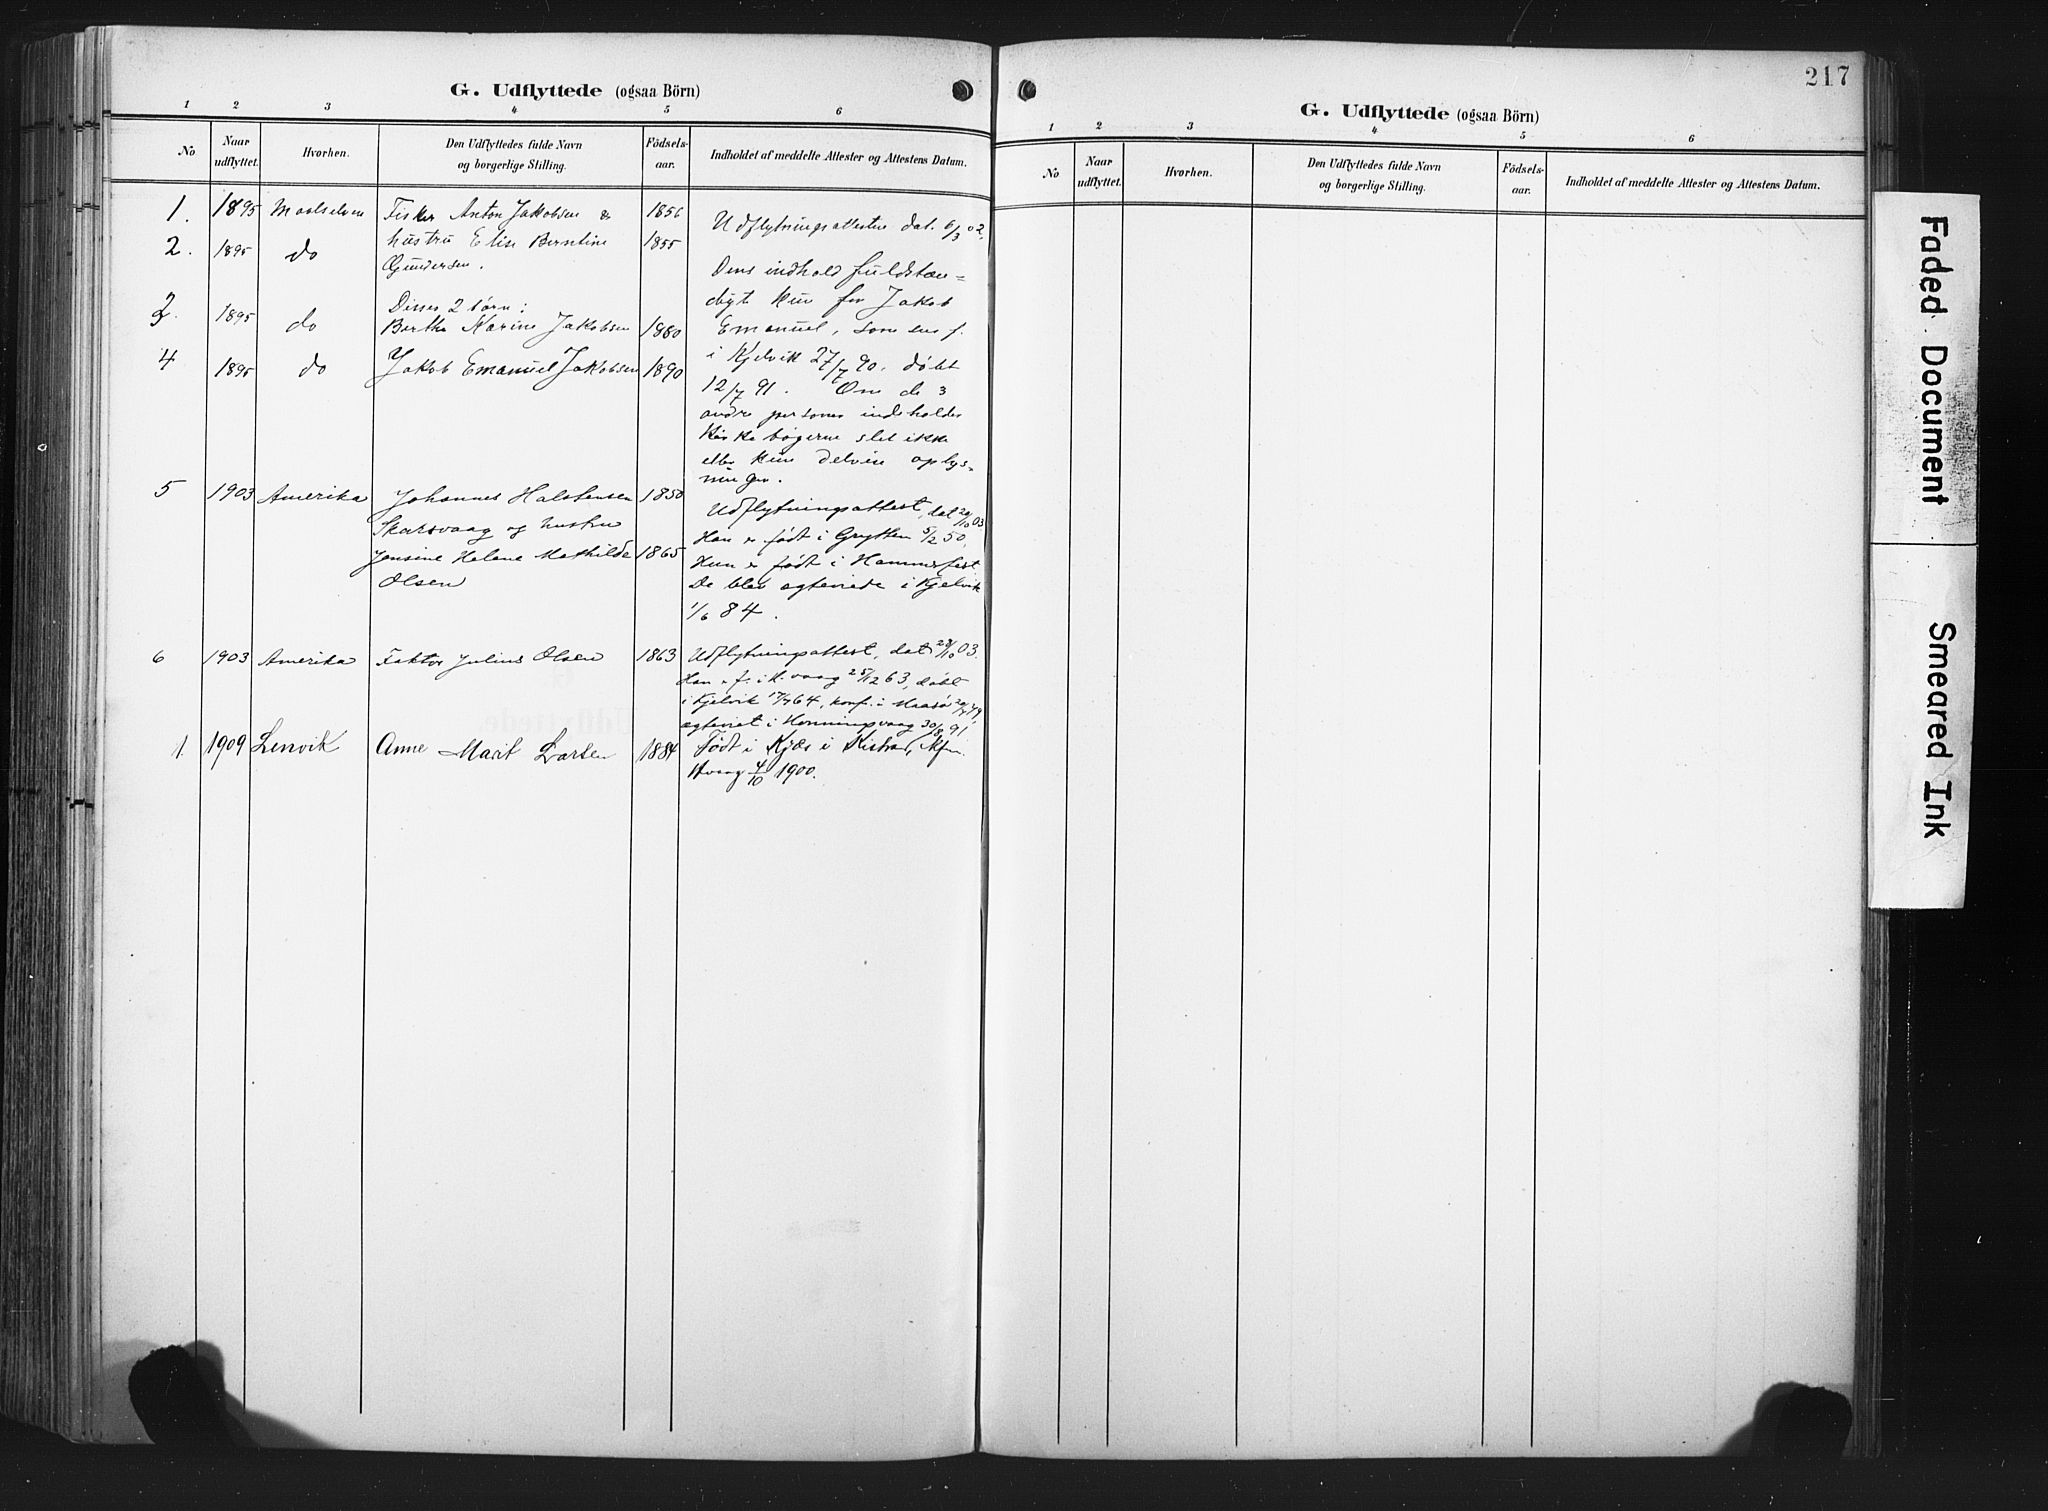 G. Udflyttede (ogsaa Börn)
1 2 3 4 5 6
No Naar udflyttet. Hvorhen. Den Udflyttedes fulde Navn og borgerlige Stilling. Födsels-aar. Indholdet af meddelte Attester og Attestens Datum.
1. 1895 Maalselven Fisker Anton Jakobsen & 1856 Udflytningsattester dat. 6/3 02.
2. 1895 do hustru Elise Berntine 1855
Gundersen. Dens indhold fuldstæn-
Disses 2 børn: digt kun for Jakob
3. 1895 do Bertha Karine Jakobsen 1880 Emanuel, som er f.
4 1895 do Jakob Emanuel Jakobsen 1890 i Kjelvik 27/7 90, døbt
12/7 91. Om de 3
andre personer indeholder
Kirkebøgerne slet ikke
eller kun delvise oplys-
ninger.
5 1903 Amerika Johannes Halstensen 1850 Udflytningsattest, dat 29/10 03
Skarsvaag og hustru Han er født i Grytten 5/2 50.
Jensine Helene Mathilde 1865 Hun er født i Hammerfest
Olsen De blev ægteviede i Kjelvik
1/6 84.
6 1903 Amerika Faktor Julius Olsen 1863 Udflytningsattest, dat 29/10 03.
Han er f. i K. vaag 25/12 63, døbt
i Kjelvik 17/7 64, konf. i Maasø
ægteviet i Honningsvaag 30/8 91
1. 1909 Lenvik Anne Marit Larsen 1884 Født i Kjæs i Kistrand, Kfm.
Hvaag 4/10 1900.
217
G. Udflyttede (ogsaa Börn)
1 2 3 4 5 6
No Naar udflyttet. Hvorhen. Den Udflyttedes fulde Navn og borgerlige Stilling. Födsels-aar. Indholdet af meddelte Attester og Attestens Datum.
Faded Document
Smeared Ink